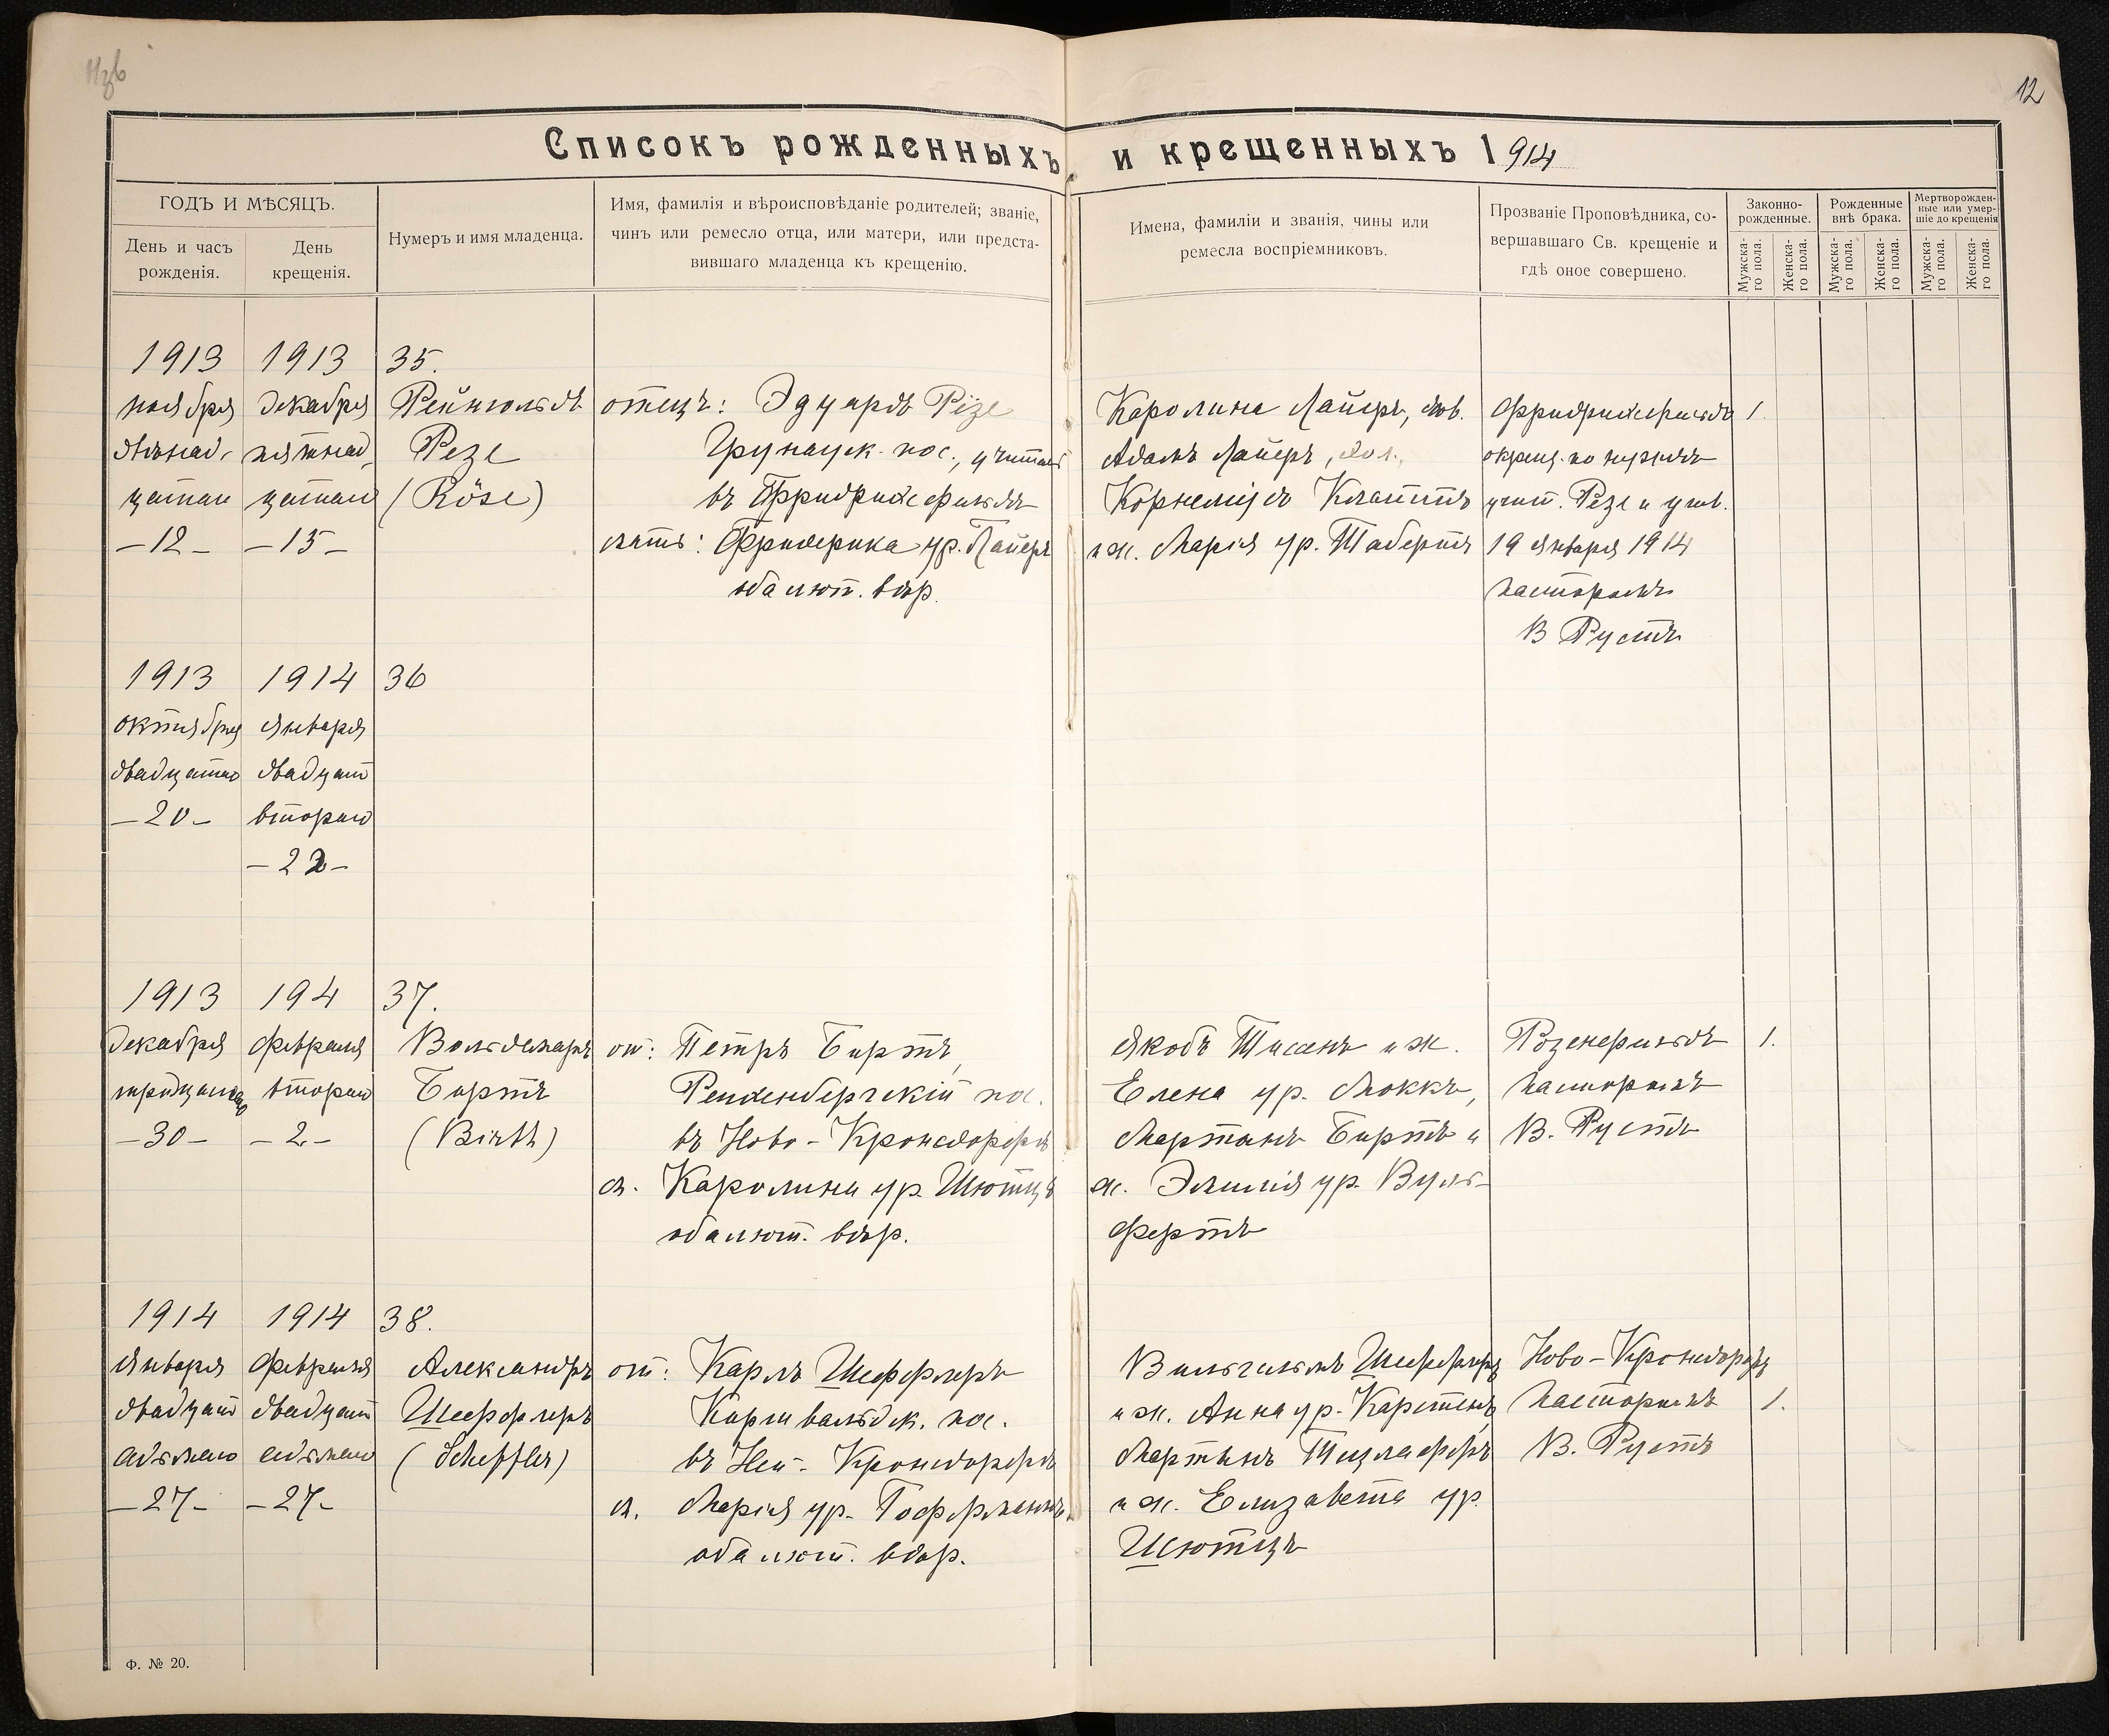 Изв
12
Списокъ рожденныхъ и крещенныхъ 1914
ГОДЪ И МѢСЯЦЪ.
День и часъ рожденія.
День крещенія.
Нумеръ и имя младенца.
Имя, фамилія и вѣроисповѣданіе родителей; званіе,
чинъ или ремесло отца, или матери, или предста-
вившаго младенца къ крещенію.
Имена, фамиліи и званія, чины или
ремесла воспріемниковъ.
Прозваніе Проповѣдника, со-
вершавшаго Св. крещеніе и
гдѣ оное совершено.
Законно-
рожденные.
Рожденные
внѣ брака.
Мертворожден-
ные или умер-
шіе до крещенія
Мужска-
го пола.
Женска-
го пола.
Мужска-
го пола.
Женска-
го пола.
Мужска-
го пола.
Женска-
го пола.
1913
ноября
двѣнад-
цатаго
-12-
1913
декабря
пятнад-
цатаго
-15-
35.
Рейнгольдъ
Резе
(Röse)
отецъ: Эдуардъ Резе
Грунауск. пос., учитель
въ Фридрихсфельдѣ
мать: Фридерика ур. Лайеръ
оба лют. вѣр.
Каролина Лайеръ, вдов.
Адамъ Лайеръ, хол.,
Корнеліусъ Клаттъ
и ж. Марія ур. Табертъ
Фридрихсфельдъ
окрещ. по нуждѣ
учит. Резе и утв.
19 января 1914
пасторомъ
В Рустъ
1.
1913
октября
двадцатаго
-20-
1914
января
двадцат
второго
-22-
36
1913
декабря
тридцатаго
-30-
194
февраля
второго
-2-
37.
Вольдемаръ
Биртъ
(Birth)
от: Петръ Биртъ,
Рейхенбергскій пос.
въ Ново-Кронсдорфѣ
м. Каролина ур. Шютцъ
оба лют. вѣр.
Якобъ Тиссенъ и ж.
Елена ур. Моккъ,
Мартынъ Биртъ и
ж. Эмилія ур. Вуль-
фертъ
Розенфельдъ
пасторомъ
В. Рустъ
1.
1914
января
двадцат
седьмого
-27-
1914
февраля
двадцат
седьмого
-27-
38.
Александръ
Шеффлеръ
(Scheffler)
от: Карлъ Шеффлеръ
Киршвальдск. пос.
въ Ней-Кронсдорфѣ
м. Марія ур. Гоффманнъ
оба лют. вѣр.
Вильгельмъ Шеффлеръ
и ж. Анна ур. Карстенъ,
Мартынъ Тицлаффъ
и ж. Елизавета ур.
Шютцъ
Ново-Кронсдорфъ
пасторомъ
В. Рустъ
1.
Ф. № 20.